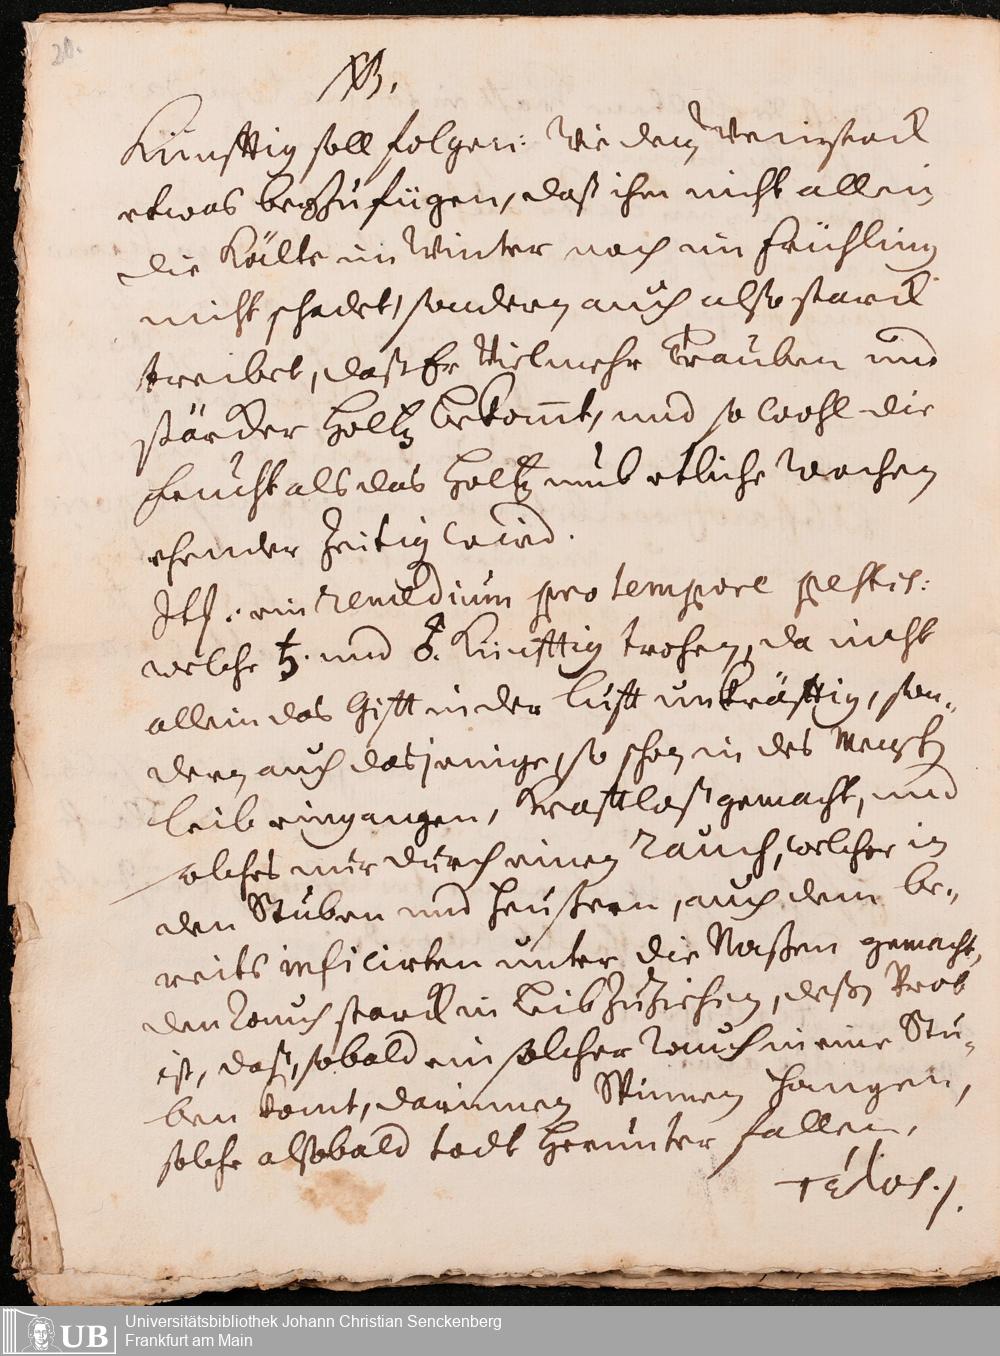 20.
NB.
Künfftig soll folgen: Wie dem Weinstock
etwas beyzufügen, daß ihm nicht allein
die Kälte im Winter noch im Frühling
nicht schadet, sondern auch also starck
treibet, daß Er Vielmehr Trauben und
stärcker Holtz bekomt, und so wohl die
Frucht als das Holtz umb etliche Wochen
ehender Zeitig wird.
It[em]: ein remedium pro tempore pestis:
welche ♄. und ♂. Künfftig trohen, da nicht
allein das Gifft in der Lufft unkräfftig, son-
dern auch dasjenige, so schon in des Mensch
Leib eingangen, Krafftloß gemacht, und
solches nur durch einen Rauch, welcher in
den Stuben und Heussern, auch dem be-
reits inficirten unter die Naßen gemacht,
den Rauch starck in Leib zuziehen, deßen Prob
ist, daß, sobald ein solcher Rauch in eine Stu-
ben komt, darinnen Spinnen hangen,
solche alsobald todt herunter fallen.
τέλος.
UB
Universitätsbibliothek Johann Christian Senckenberg
Frankfurt am Main